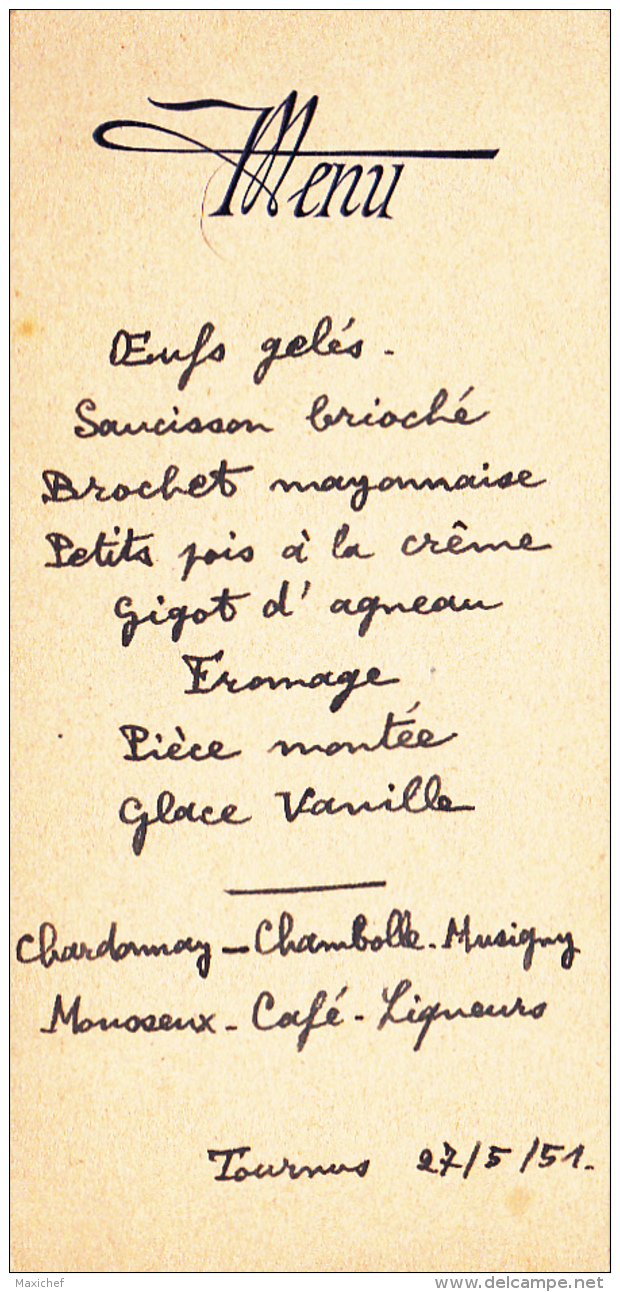 Menu
Œufs gelés.
Saucisson brioché
Brochet mayonnaise
Petits pois à la crême
Gigot d'agneau
Fromage
Pièce montée
Glace Vanille
Chardonnay - Chambolle-Musigny
Mousseux - Café - Liqueurs
Tournus 27/5/51.
Maxichef
www.delcampe.net